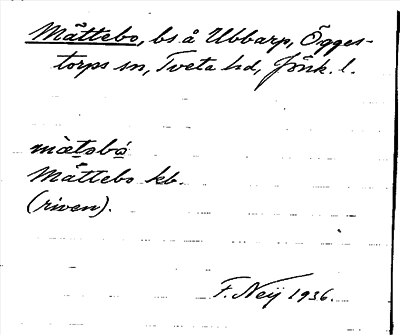 Måttebo, bs å Ubbarp, Ögges-
torps sn, Tveta hd, Jönk. l.
mætobo
Måttebo kb.
(riven).
F. Neij 1936.